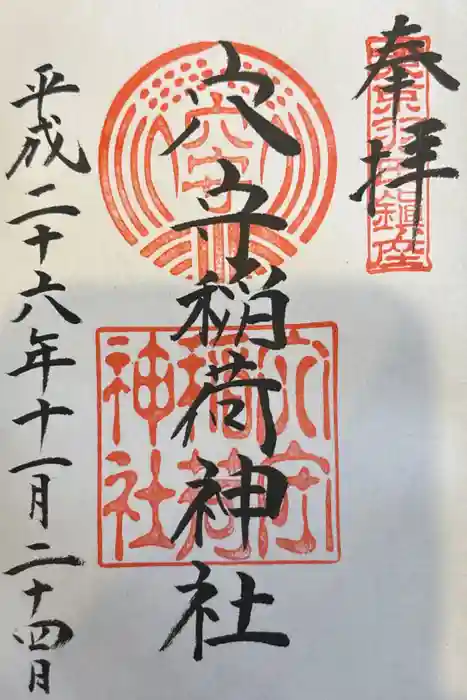 奉拝
東京羽田鎮座
穴守
穴守稲荷神社
穴守稲荷神社
平成二十六年十一月二十四日